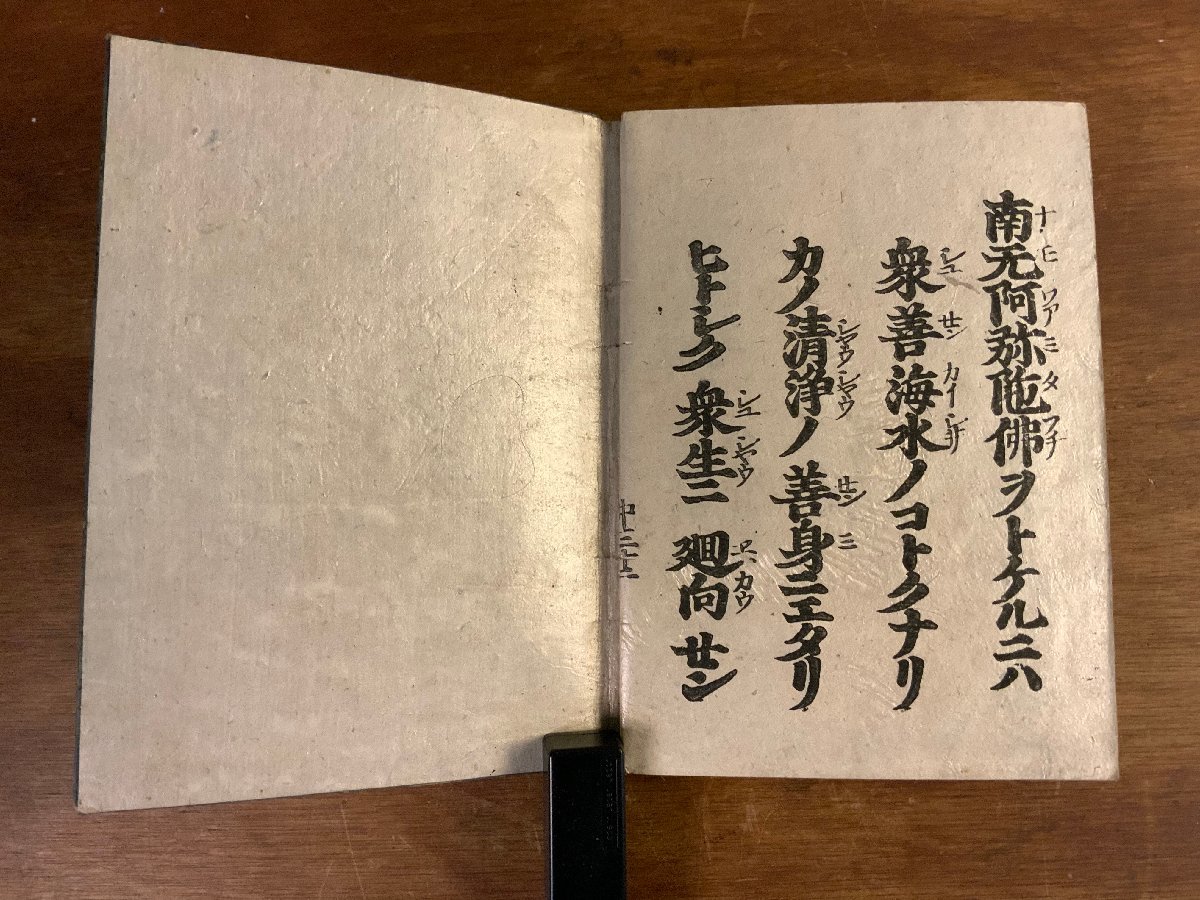 南无阿弥陁佛ヲトケルニハ
衆善海水ノコトクナリ
カノ清浄ノ善身ニエタリ
ヒトシク衆生ニ廻向せン